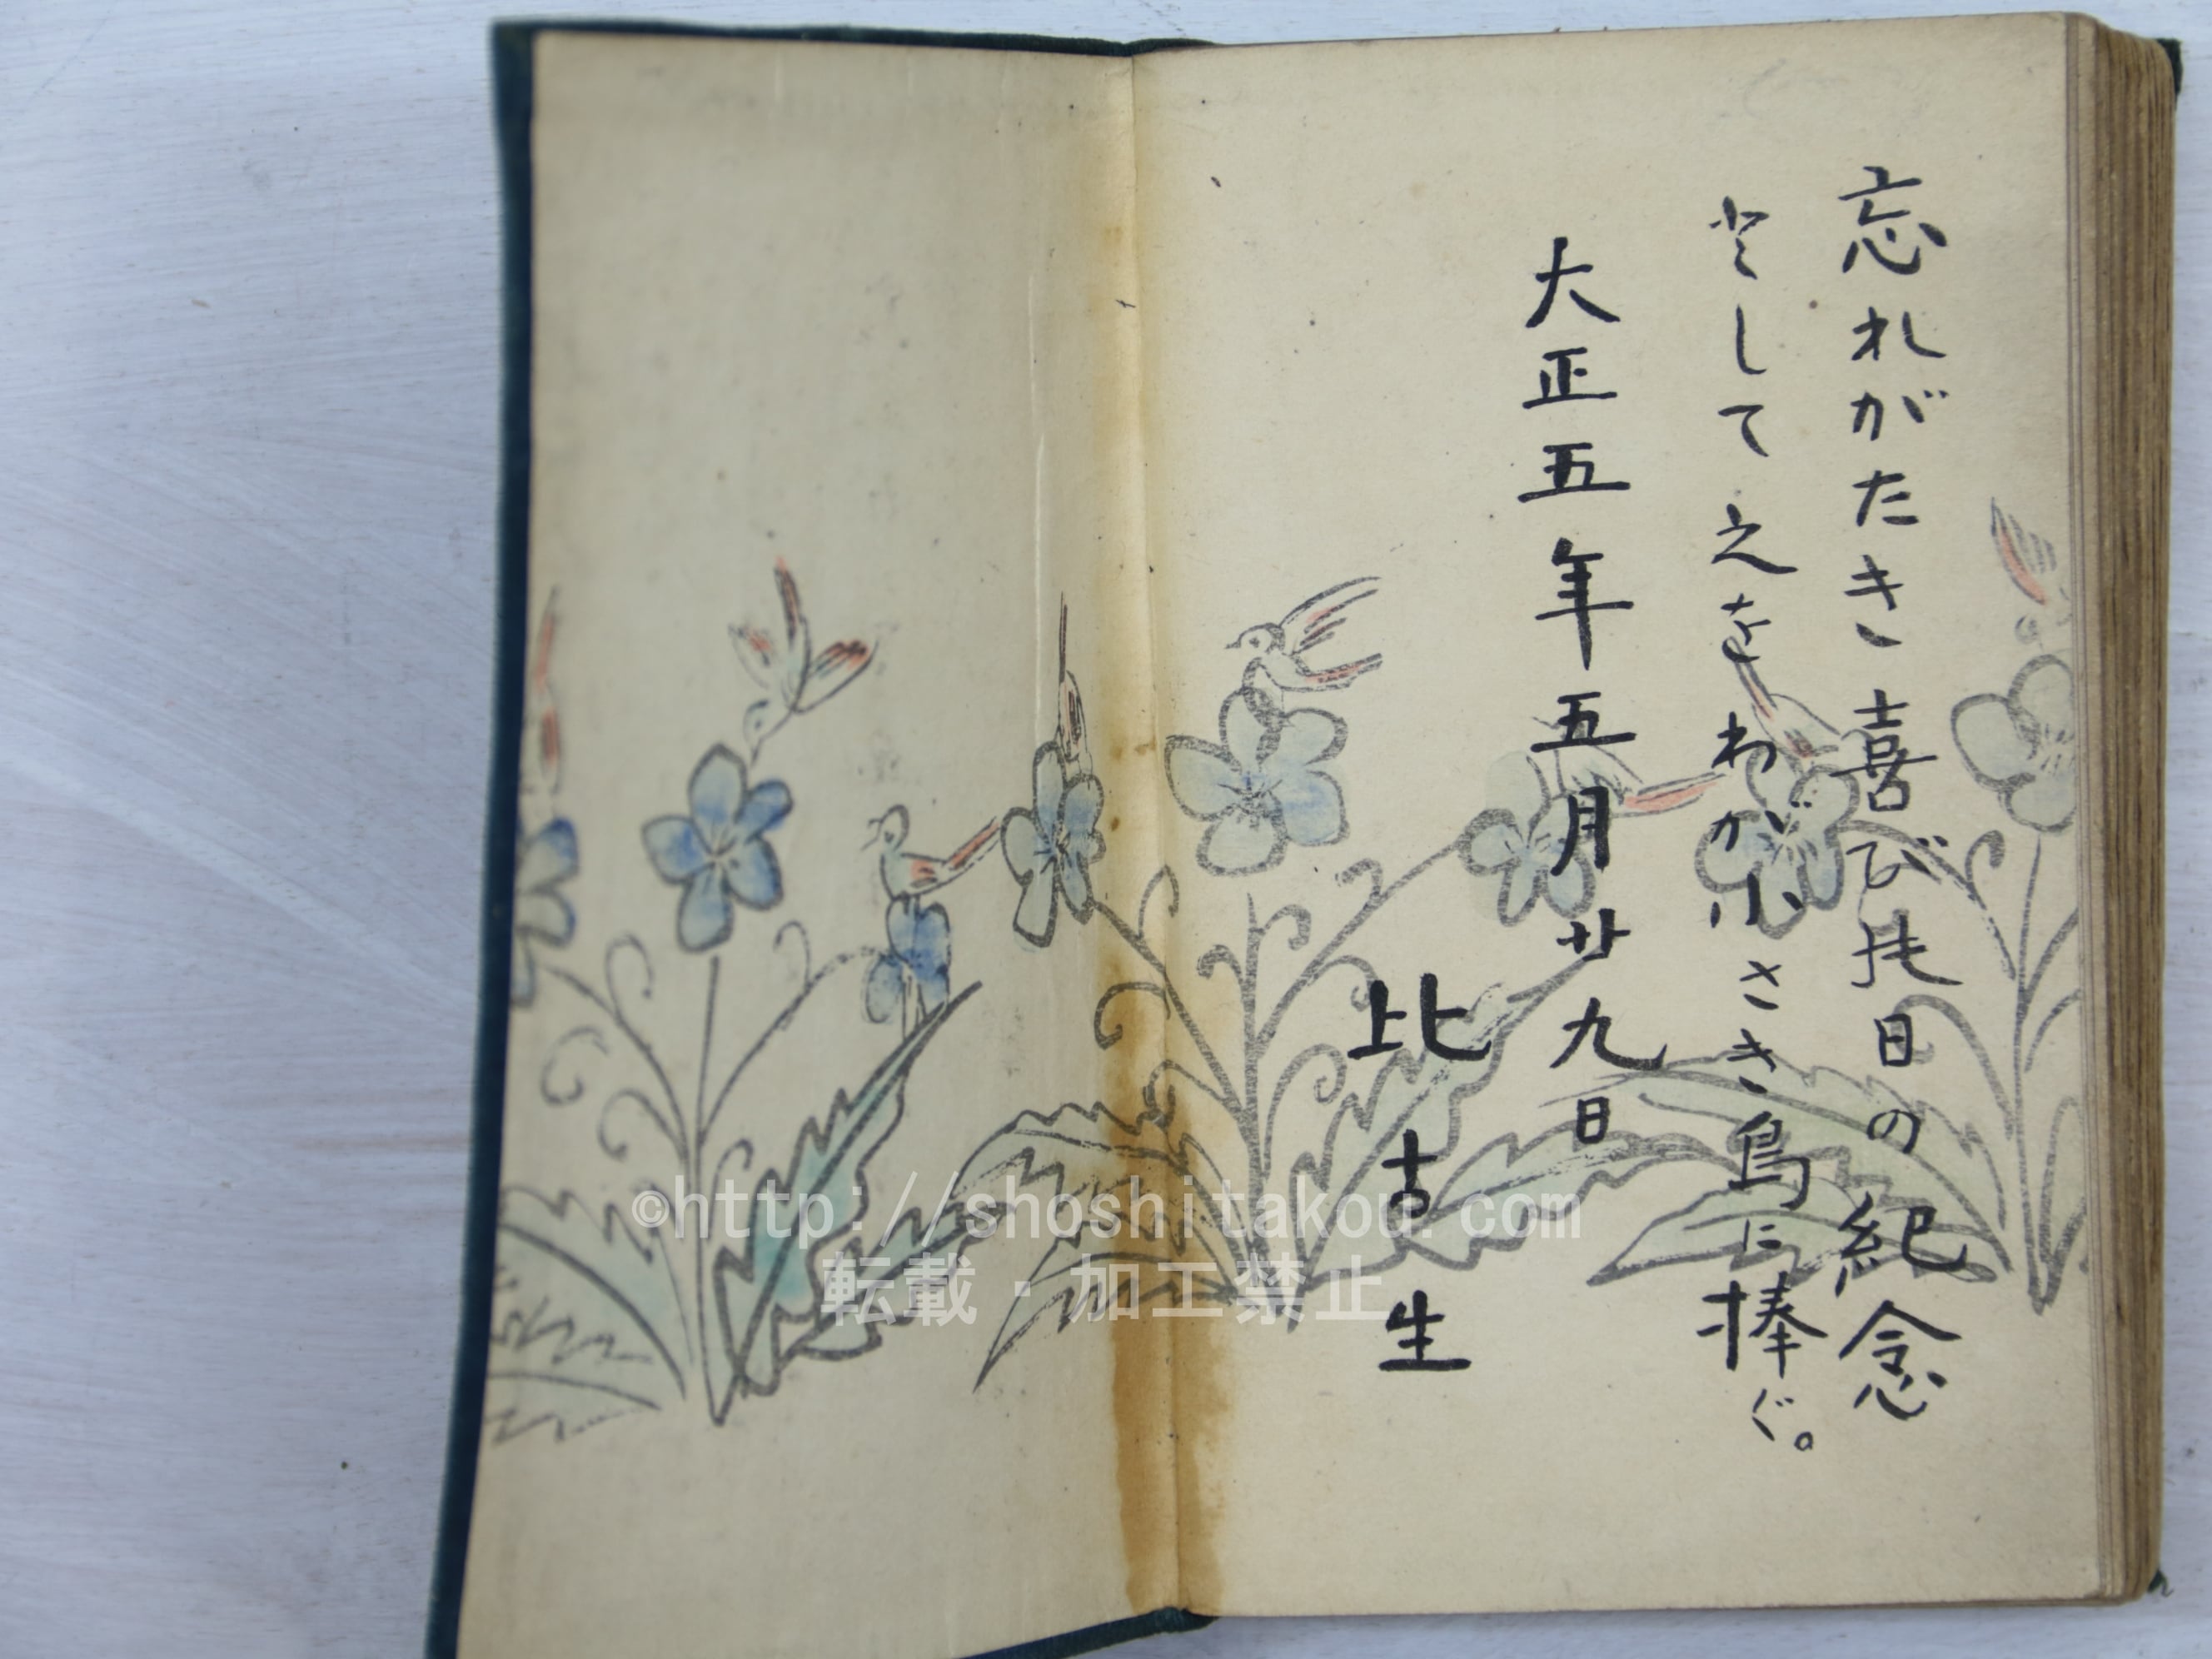 忘れがたき喜び此日の紀念
として之をわが小さき鳥に捧ぐ。
大正五年五月廿九日
比古生
©http://shoshitakou.com
転載・加工禁止